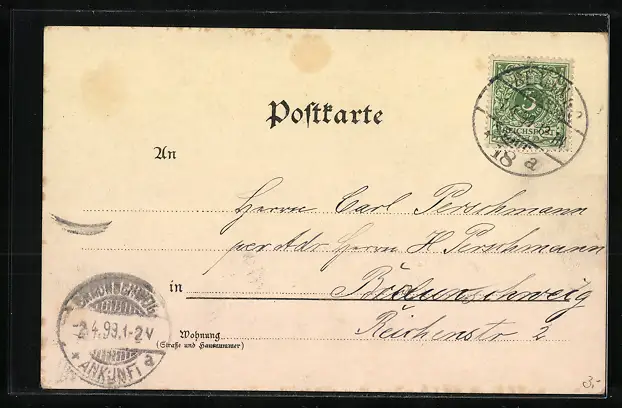 Postkarte
5
REICHSPOST
18 a
An
Herrn Carl Perschmann
per Adr. Herrn H. Perschmann
in Braunschweig
Reichenstr 2
Wohnung
(Straße und Hausnummer)
BRAUNSCHWEIG
-2.4.99.1-2V
* ANKUNFT a
3,-